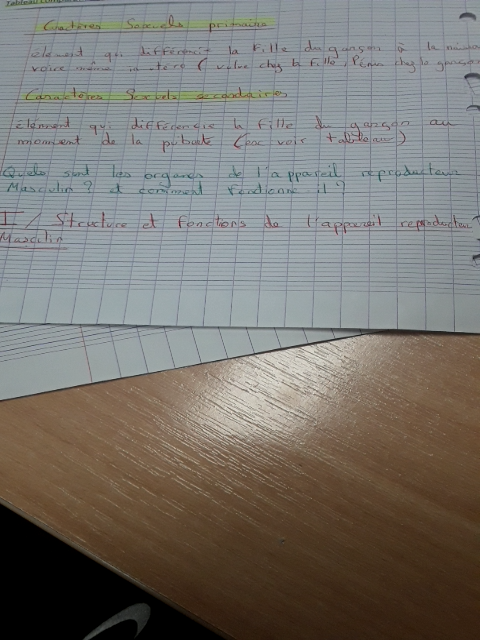 Tableau
Caractères Sexuels primaire
élément qui différencit la Fille du garçon à la naiss
voire même in utéro ( vulve chez la Fille, Pénis chez le garçon
Caractères Sexuels secondaires
élément qui différencie la Fille du garçon au
momment de la puberté ( voir tableau )
Quels sont les organes de l'appareil reproducteur
Masculin ? et comment fonctionne-il ?
II / Structure et fonctions de l'appareil reproducteur
Masculin